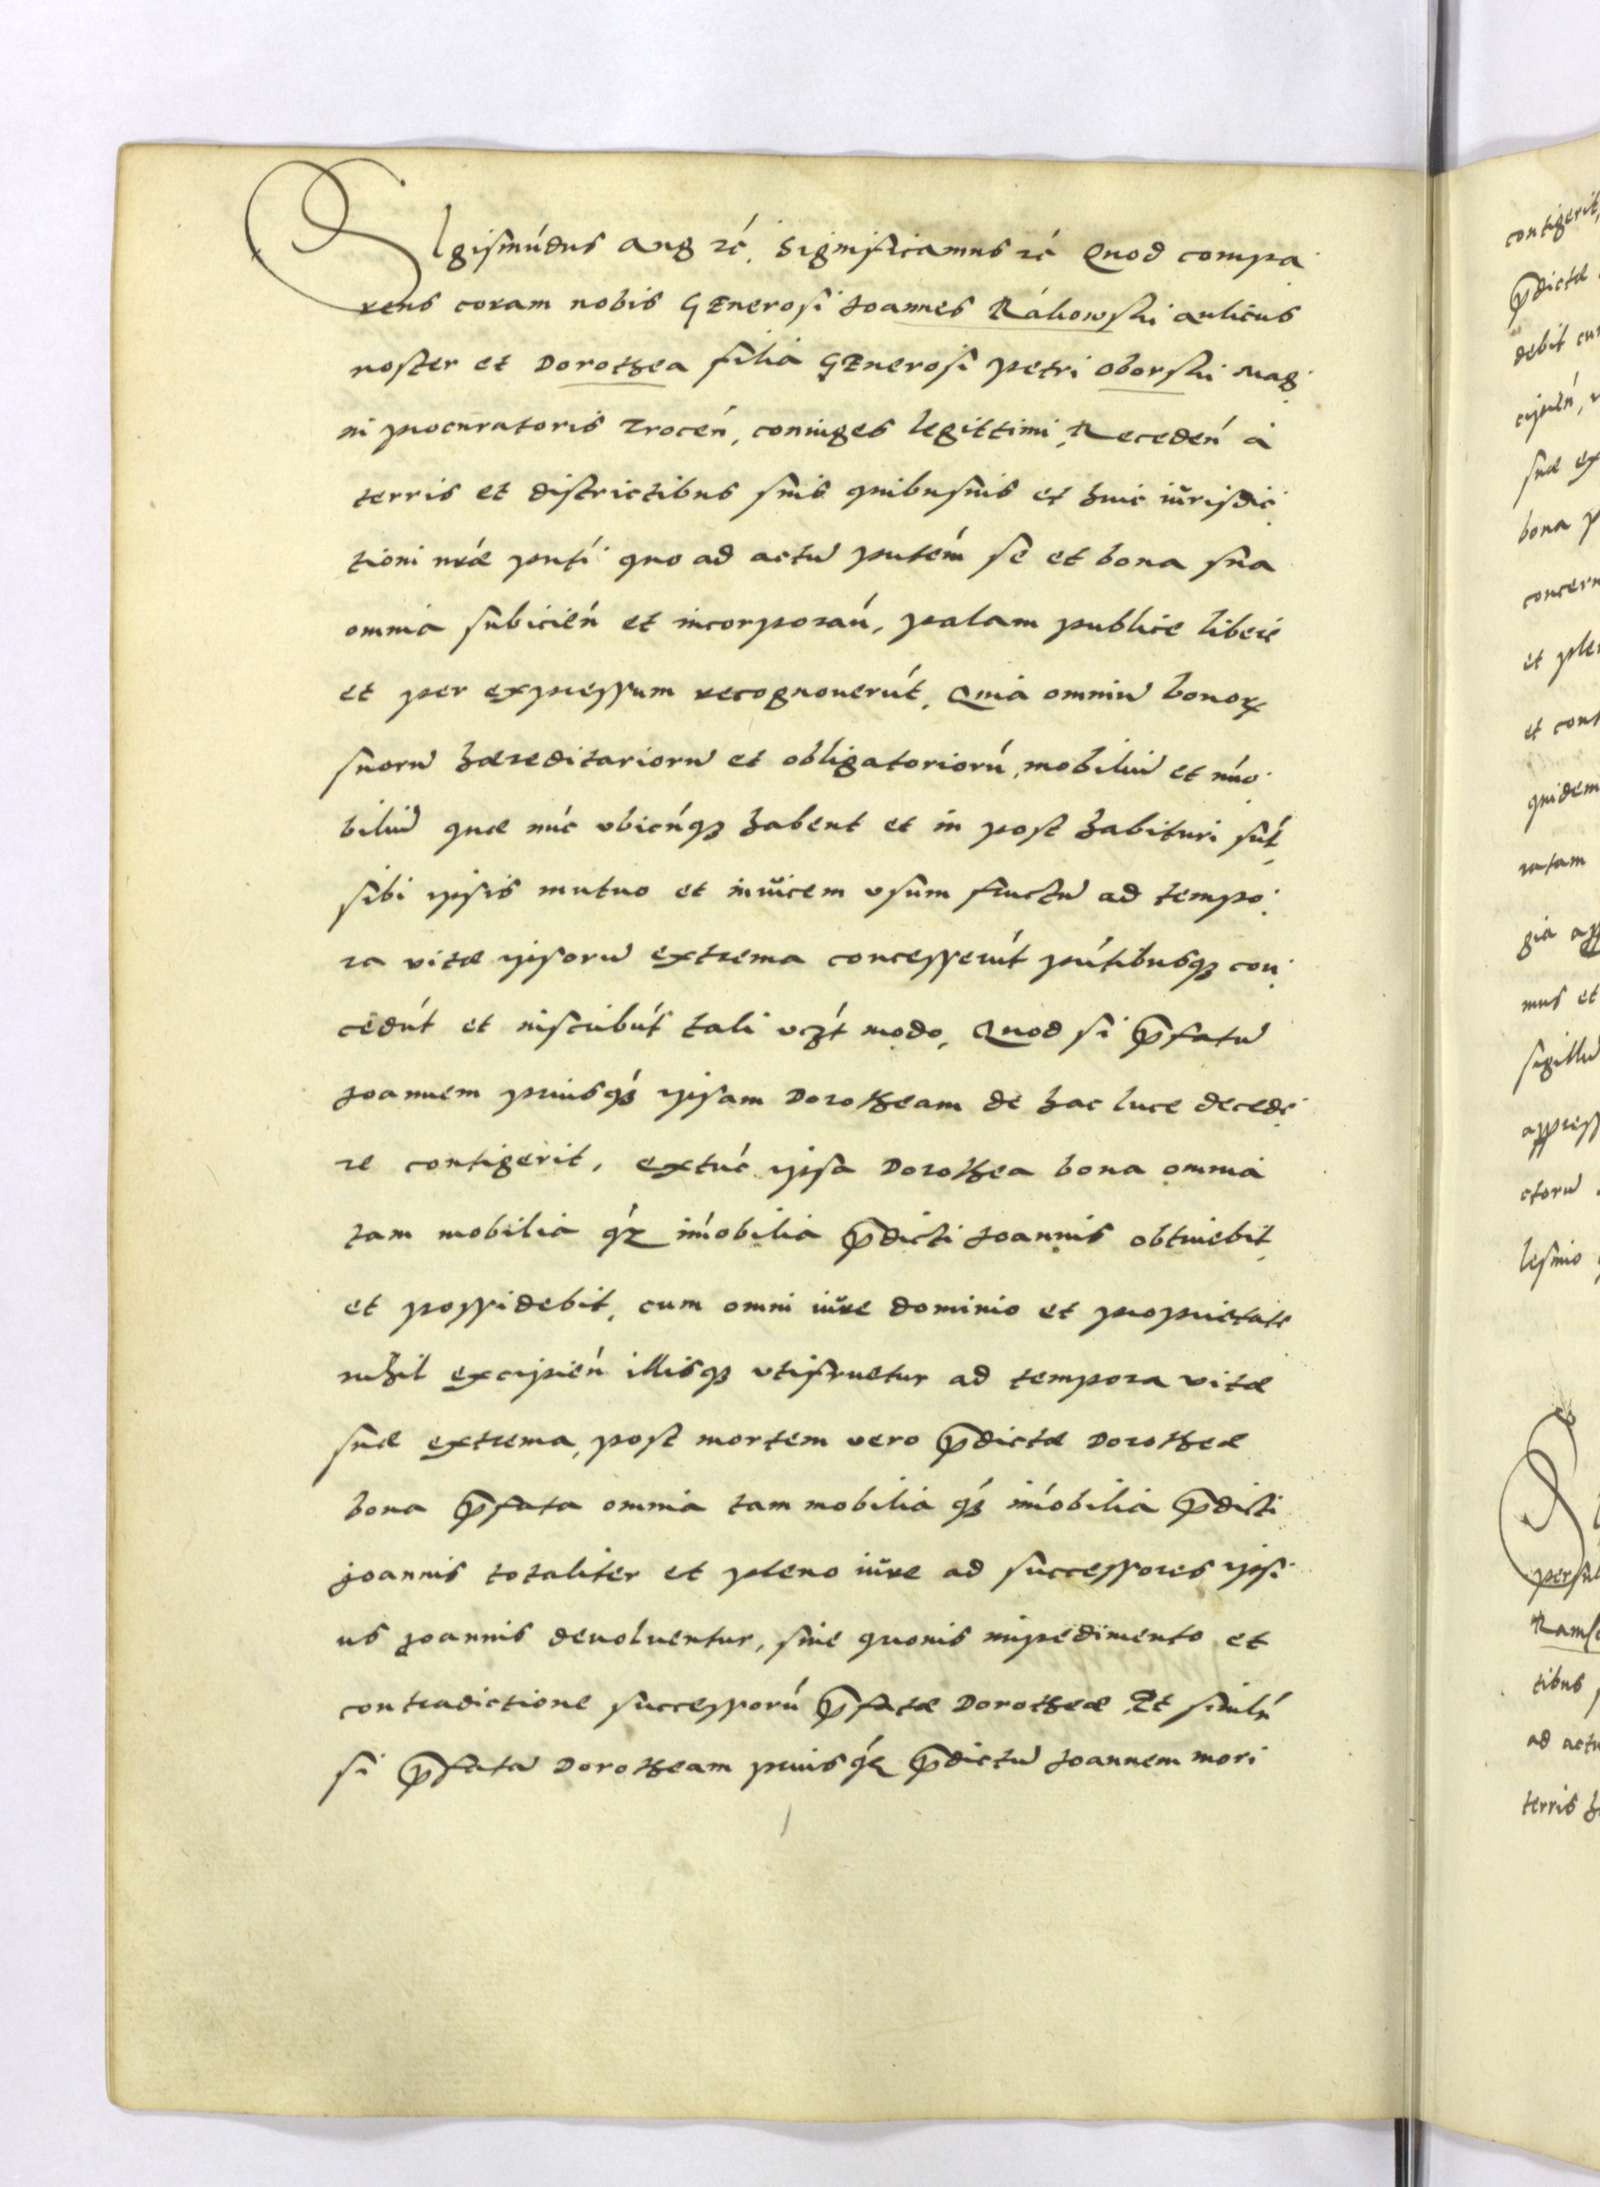 SIgismūdus Aug zć. Significamus zć Quod compa
rens coram nobis GEnerosi Joannes Rakowski aulicus
noster et Dorothea filia GEnerosi Petri Oborski Mag
ni procuratoris Trocen̄, coniuges legittimi, Receden̄ a
terris et districtibus suis quibusuis et huic iurisdic
tioni nr̄æ pn̄ti quo ad actū pn̄tem se et bona sua
omnia subicien̄ et incorporan̄, palam publice libere
et per expressum recognouerūt. Quia omniū bonoꝝ
suorū hæreditariorū et obligatoriorū, mobiliū et im̄o
biliū quæ nūc vbicūqꝫ habent et in post habituri sūt
sibi ipsis mutuo et inuicem vsum fructū ad tempo
ra vitæ ipsorū extrema concesserūt pn̄tibusqꝫ con
cedūt et inscribūt tali vcꝫt modo, Quod si p̄fatū
Joannem priusqꝫ ipsam Dorotheam de hac luce decede
re contigerit, extūc ipsa Dorothea bona omnia
tam mobilia qꝫ im̄obilia p̄dicti Joannis obtinebit
et possidebit, cum omni iure dominio et proprietate
nihil excipien̄ illisqꝫ vtifruetur ad tempora vitæ
suæ extrema, post mortem vero p̄dictæ Dorotheæ
bona p̄fata omnia tam mobilia qꝫ im̄obilia p̄dicti
Joannis totaliter et pleno iure ad successores ipsi
us Joannis deuoluentur, sine quouis impedimento et
contradictione successorū p̄fatæ Dorotheæ Et similr̄
si p̄fatā Dorotheam priusqꝫ p̄dictū Joannem mori
contigerit,
p̄dictæ
debit cum
cipien̄,
suæ ex
bona p
concern
et ple
et cont
quidem
ratam
gia app
mus et
sigillū
appress
ctorū
lesimo
persu
Rams
tibus
ad actū
terris h